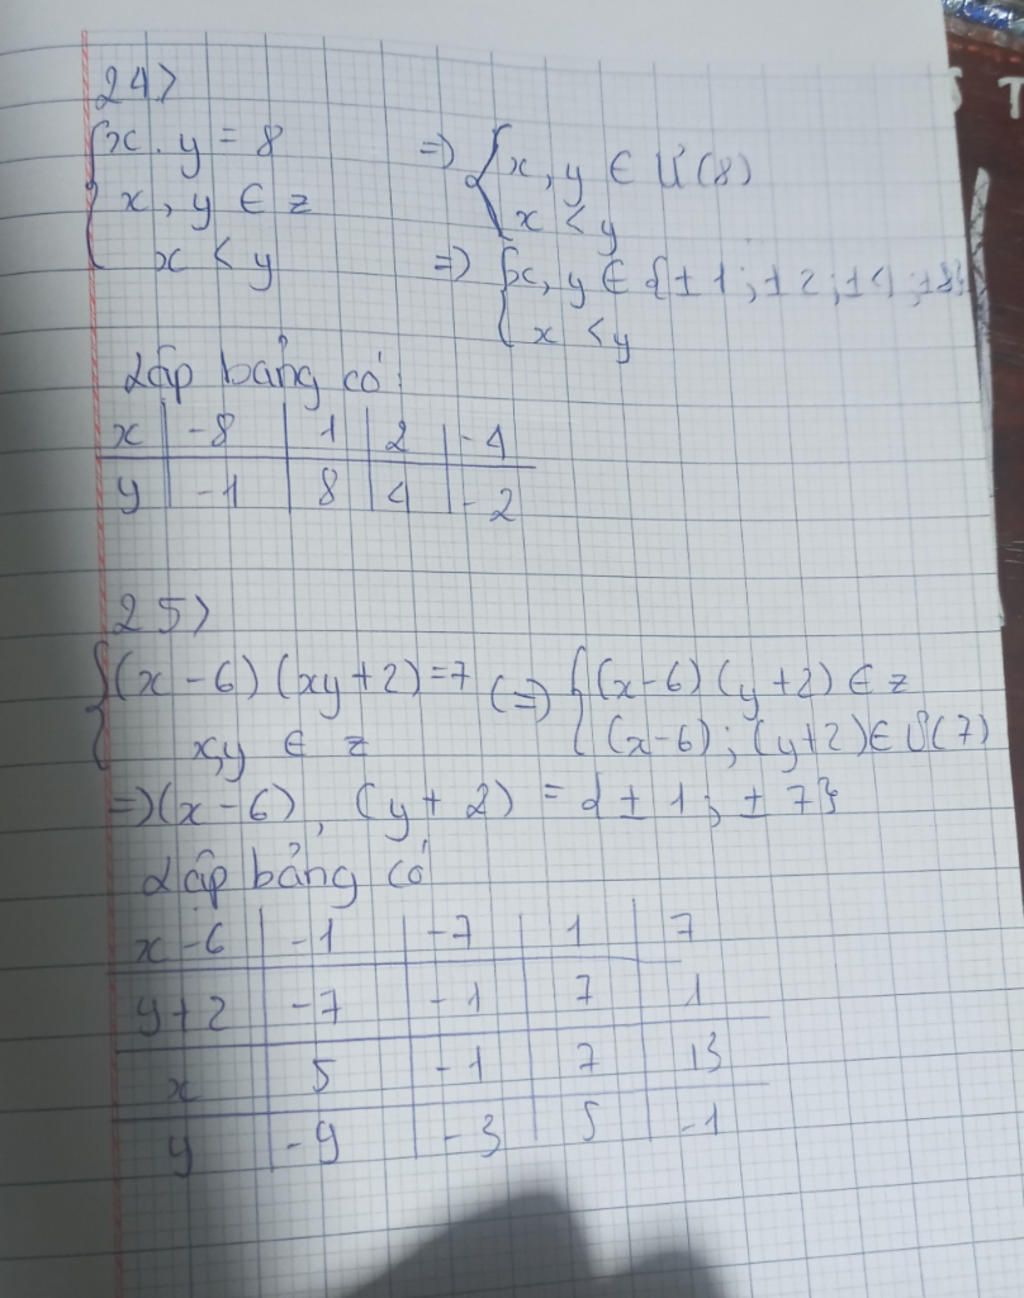 24>
x. y = 8 => x, y ∈ Ư(8)
x, y ∈ z x < y
x < y => x, y ∈ {±1; ±2; ±4; ±8}
x < y
Lập bảng có:
x | -8 | 1 | 2 | -4
y | -1 | 8 | 4 | -2
25>
(x - 6) (xy + 2) = 7 (=> (x-6) (y+2) ∈ z
x,y ∈ z (x-6); (y+2) ∈ Ư(7)
=> (x - 6), (y + 2) = {± 1; ± 7}
Lập bảng có
x - 6 | -1 | -7 | 1 | 7
y + 2 | -7 | -1 | 7 | 1
x | 5 | -1 | 7 | 13
y | -9 | -3 | 5 | -1